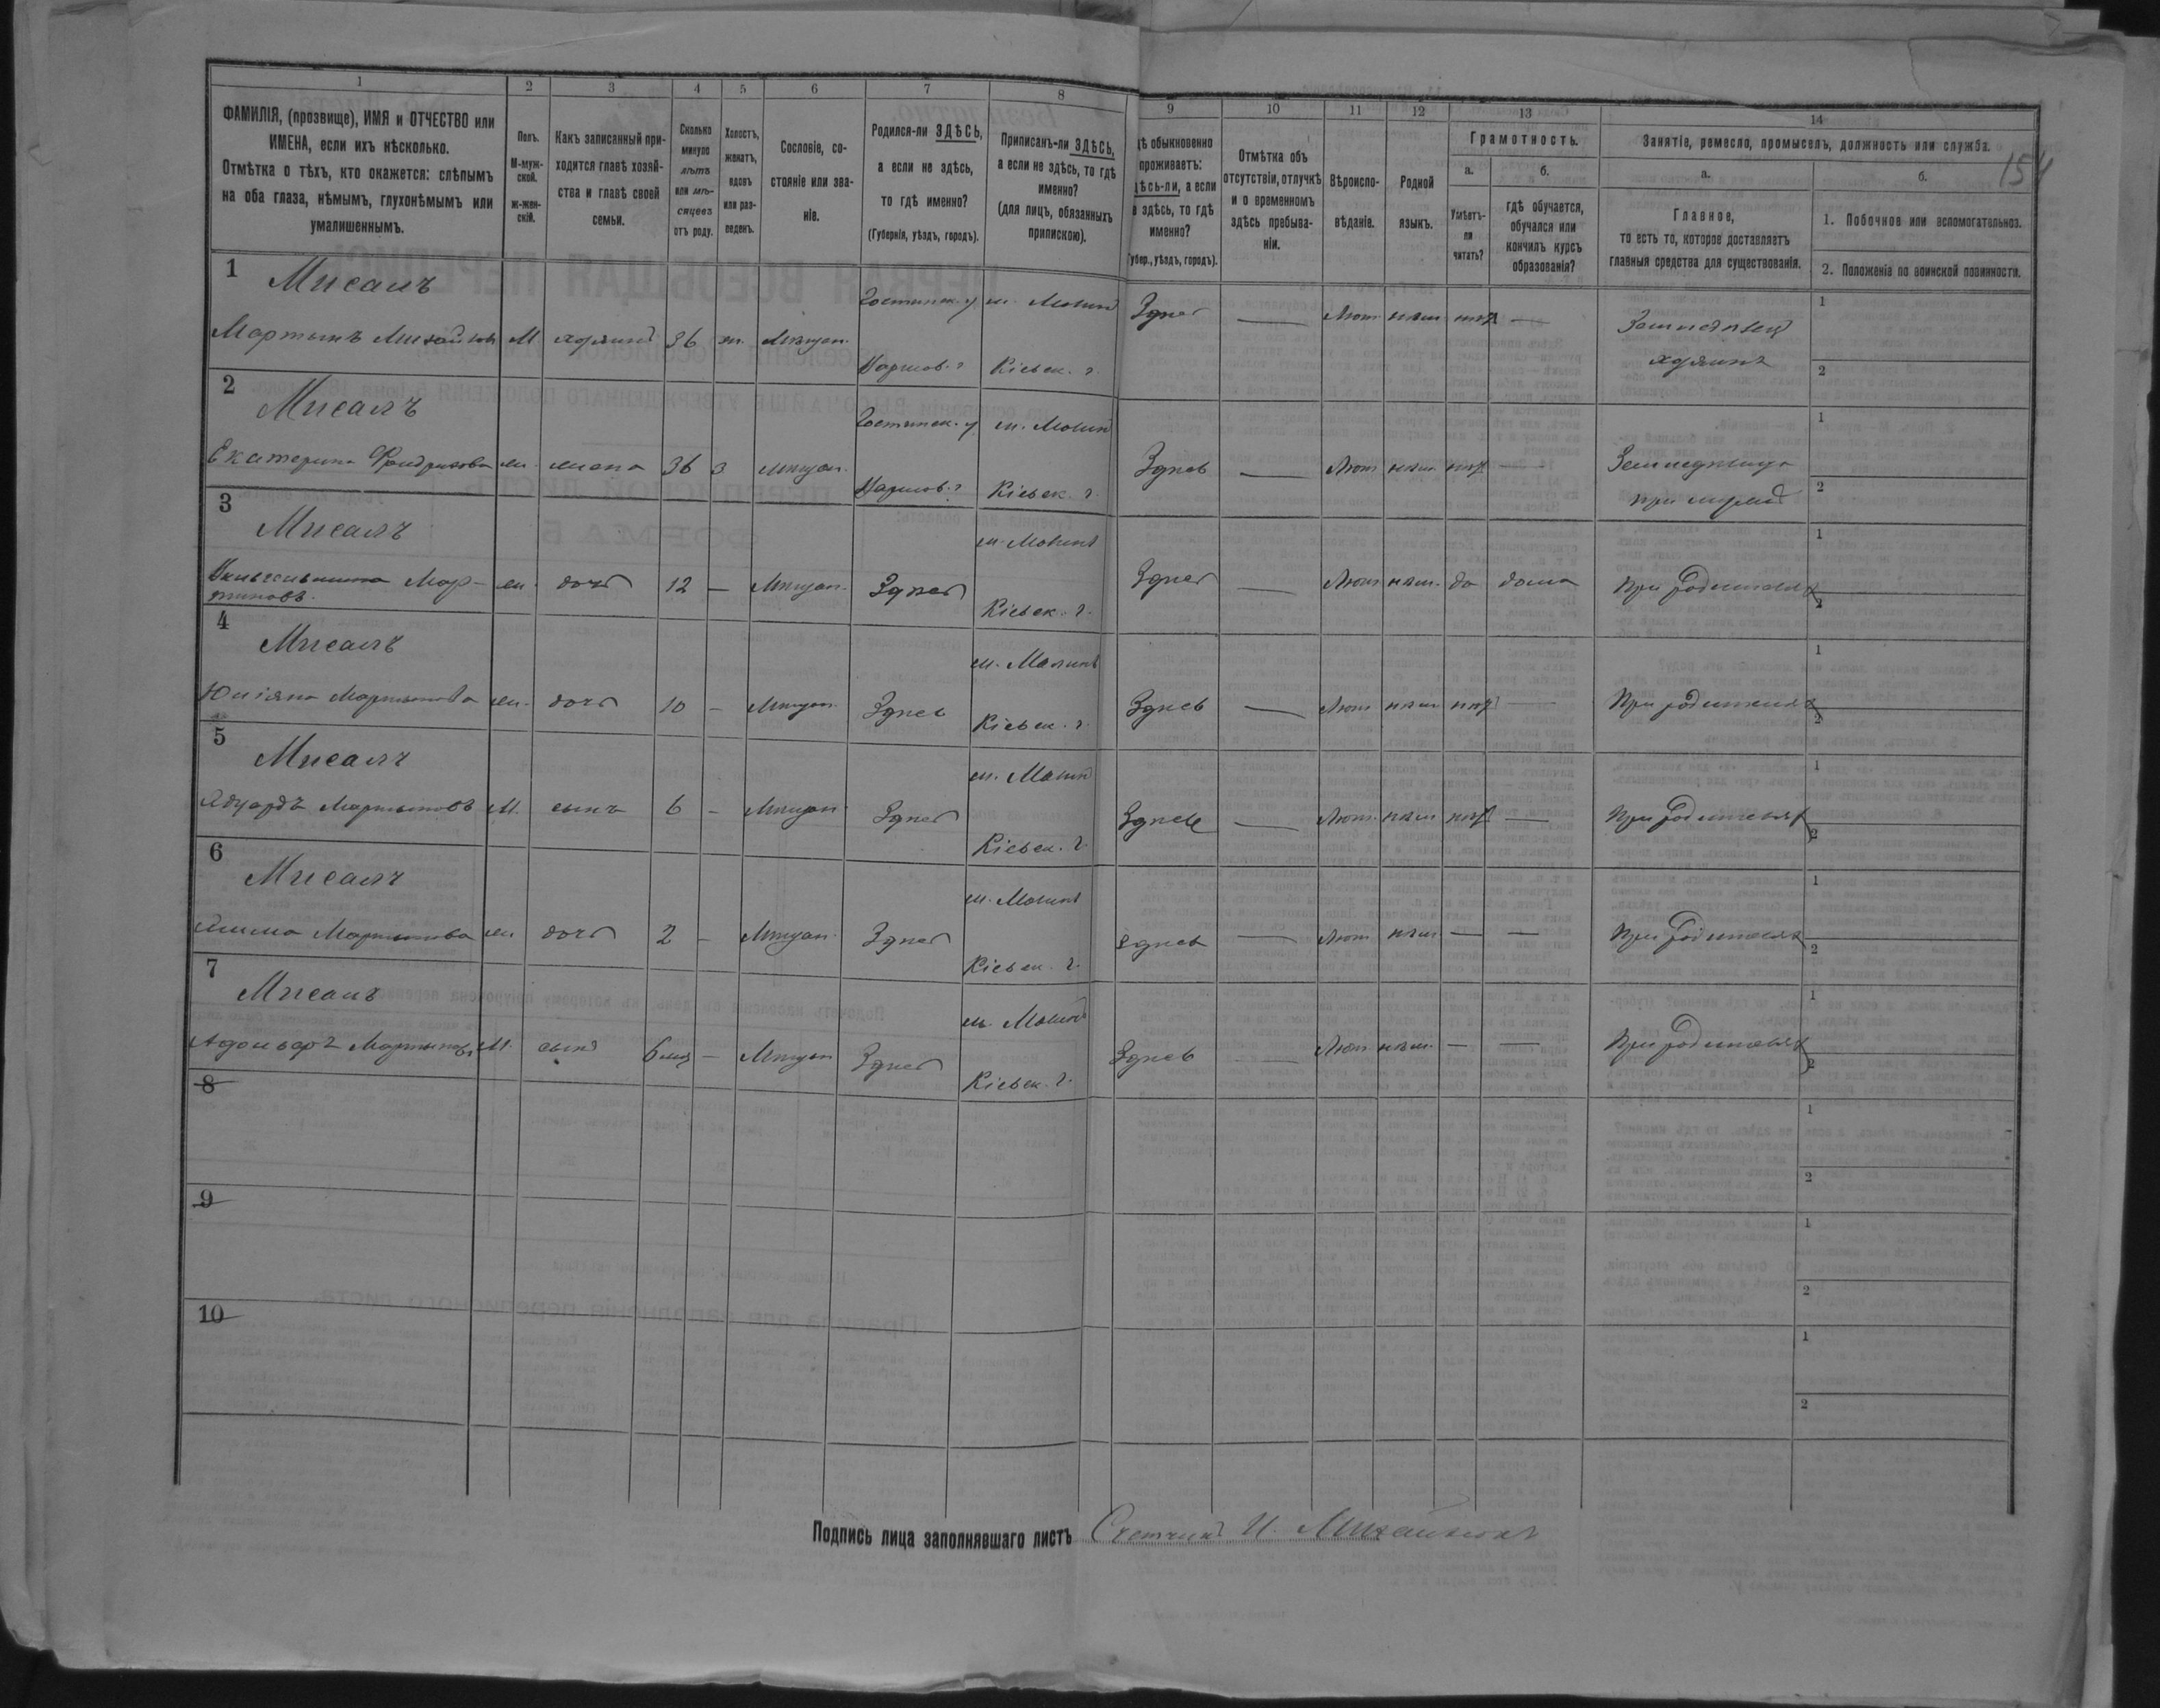 1 2 3 4 5 6 7 8 9 10 11 12 13 14
ФАМИЛІЯ, (прозвище), ИМЯ и ОТЧЕСТВО или
ИМЕНА, если ихъ нѣсколько.
Отмѣтка о тѣхъ, кто окажется: слѣпымъ
на оба глаза, нѣмымъ, глухонѣмымъ или
умалишеннымъ.
Полъ.
М-муж-
ской.
ж-жен-
скій.
Какъ записанный при-
ходится главѣ хозяй-
ства и главѣ своей
семьи.
Сколько
минуло
лѣтъ
или мѣ-
сяцевъ
отъ роду.
Холостъ,
женатъ,
вдовъ
или раз-
веденъ.
Сословіе, со-
стояніе или зва-
ніе.
Родился-ли ЗДѢСЬ,
а если не здѣсь,
то гдѣ именно?
(Губернія, уѣздъ, городъ).
Приписанъ-ли ЗДѢСЬ,
а если не здѣсь, то гдѣ
именно?
(для лицъ, обязанныхъ
припискою).
дѣ обыкновенно
проживаетъ:
дѣсь-ли, а если
здѣсь, то гдѣ
именно?
убер., уѣздъ, городъ).
Отмѣтка объ
отсутствіи, отлучкѣ
и о временномъ
здѣсь пребыва-
ніи.
Вѣроиспо-
вѣданіе.
Родной
языкъ.
Грамотность.
а.
Умѣетъ-
ли
читать?
б.
гдѣ обучается,
обучался или
кончилъ курсъ
образованія?
Занятіе, ремесло, промыселъ, должность или служба.
а.
Главное,
то есть то, которое доставляетъ
главныя средства для существованія.
б.
1. Побочное или вспомогательное.
2. Положеніе по воинской повинности.
154
1 Мисаль Гостинск. у м. Малинъ Здесь — Лют. нѣм. нѣт — Земледѣлец 1
Мартынъ М хозяинъ 36 ж. Мѣщан. Варшав. г Кіевск. г. хозяинъ 2
2 Мисаль Гостинск. у м. Малинъ 1
Екатерина ж. жена 36 з Мѣщан. Варшав. г. Кіевск. г. Здесь — Лют нѣм нѣт — при мужѣ 2
3 Мисаль м. Малинъ 1
Мар-
тинова ж. дочь 12 — Мѣщан. Здесь Кіевск. г. Здесь — Лют нѣм. да дома При родителях 2
4 Мисаль м. Малинъ 1
Юліяна Мартынова ж. дочь 10 — Мѣщан. Здесь Кіевск. г. Здесь — Лют нѣм. нѣт — При родителях 2
5 Мисаль м. Малинъ 1
Эдуардъ Мартыновъ М. сынъ 6 — Мѣщан Здесь Кіевск. г. Здесь — Лют. нѣм нѣт — При родителях 2
6 Мисаль м. Малинъ 1
Мартынова ж дочь 2 — Мѣщан. Здесь Кіевск. г. Здесь — Лют нѣм — — При родителях 2
7 Мисаль м. Малинъ 1
Мартыновъ М. сынъ 6 мѣс — Мѣщан Здесь Кіевск. г. Здесь — Лют нѣм. — — При родителях 2
8 1
2
9 1
2
10 1
2
Подпись лица заполнявшаго листъ Счетчикъ И.